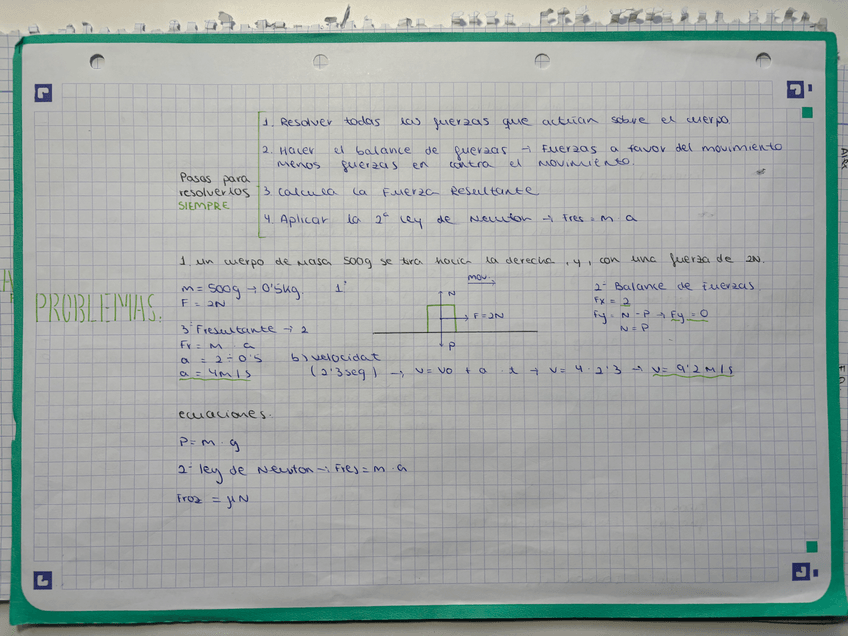 1. Resolver todas las fuerzas que actúan sobre el cuerpo
2. Hacer el balance de fuerzas → Fuerzas a favor del movimiento
menos fuerzas en contra el movimiento.
Pasos para
resolverlos
SIEMPRE
3. Calcula la Fuerza Resultante
4. Aplicar la 2ª ley de Newton → Fres = m · a
PROBLEMAS.
1. Un cuerpo de masa 500g se tira hacia la derecha, y, con una fuerza de 2N.
m = 500g → 0'5kg.
F = 2N
1'
mov.
N
F = 2N
P
2- Balance de Fuerzas
Fx = 2
Fy = N - P → Fy = 0
N = P
3- Fresultante → 2
Fr = m · a
a = 2 ÷ 0'5
a = 4m/s
b) velocidat
(2'3seg) → v = vo + a · t → v = 4 · 2'3 → v = 9'2 m/s
ecuaciones.
P = m · g
2- ley de Newton → Fres = m · a
Froz = μN